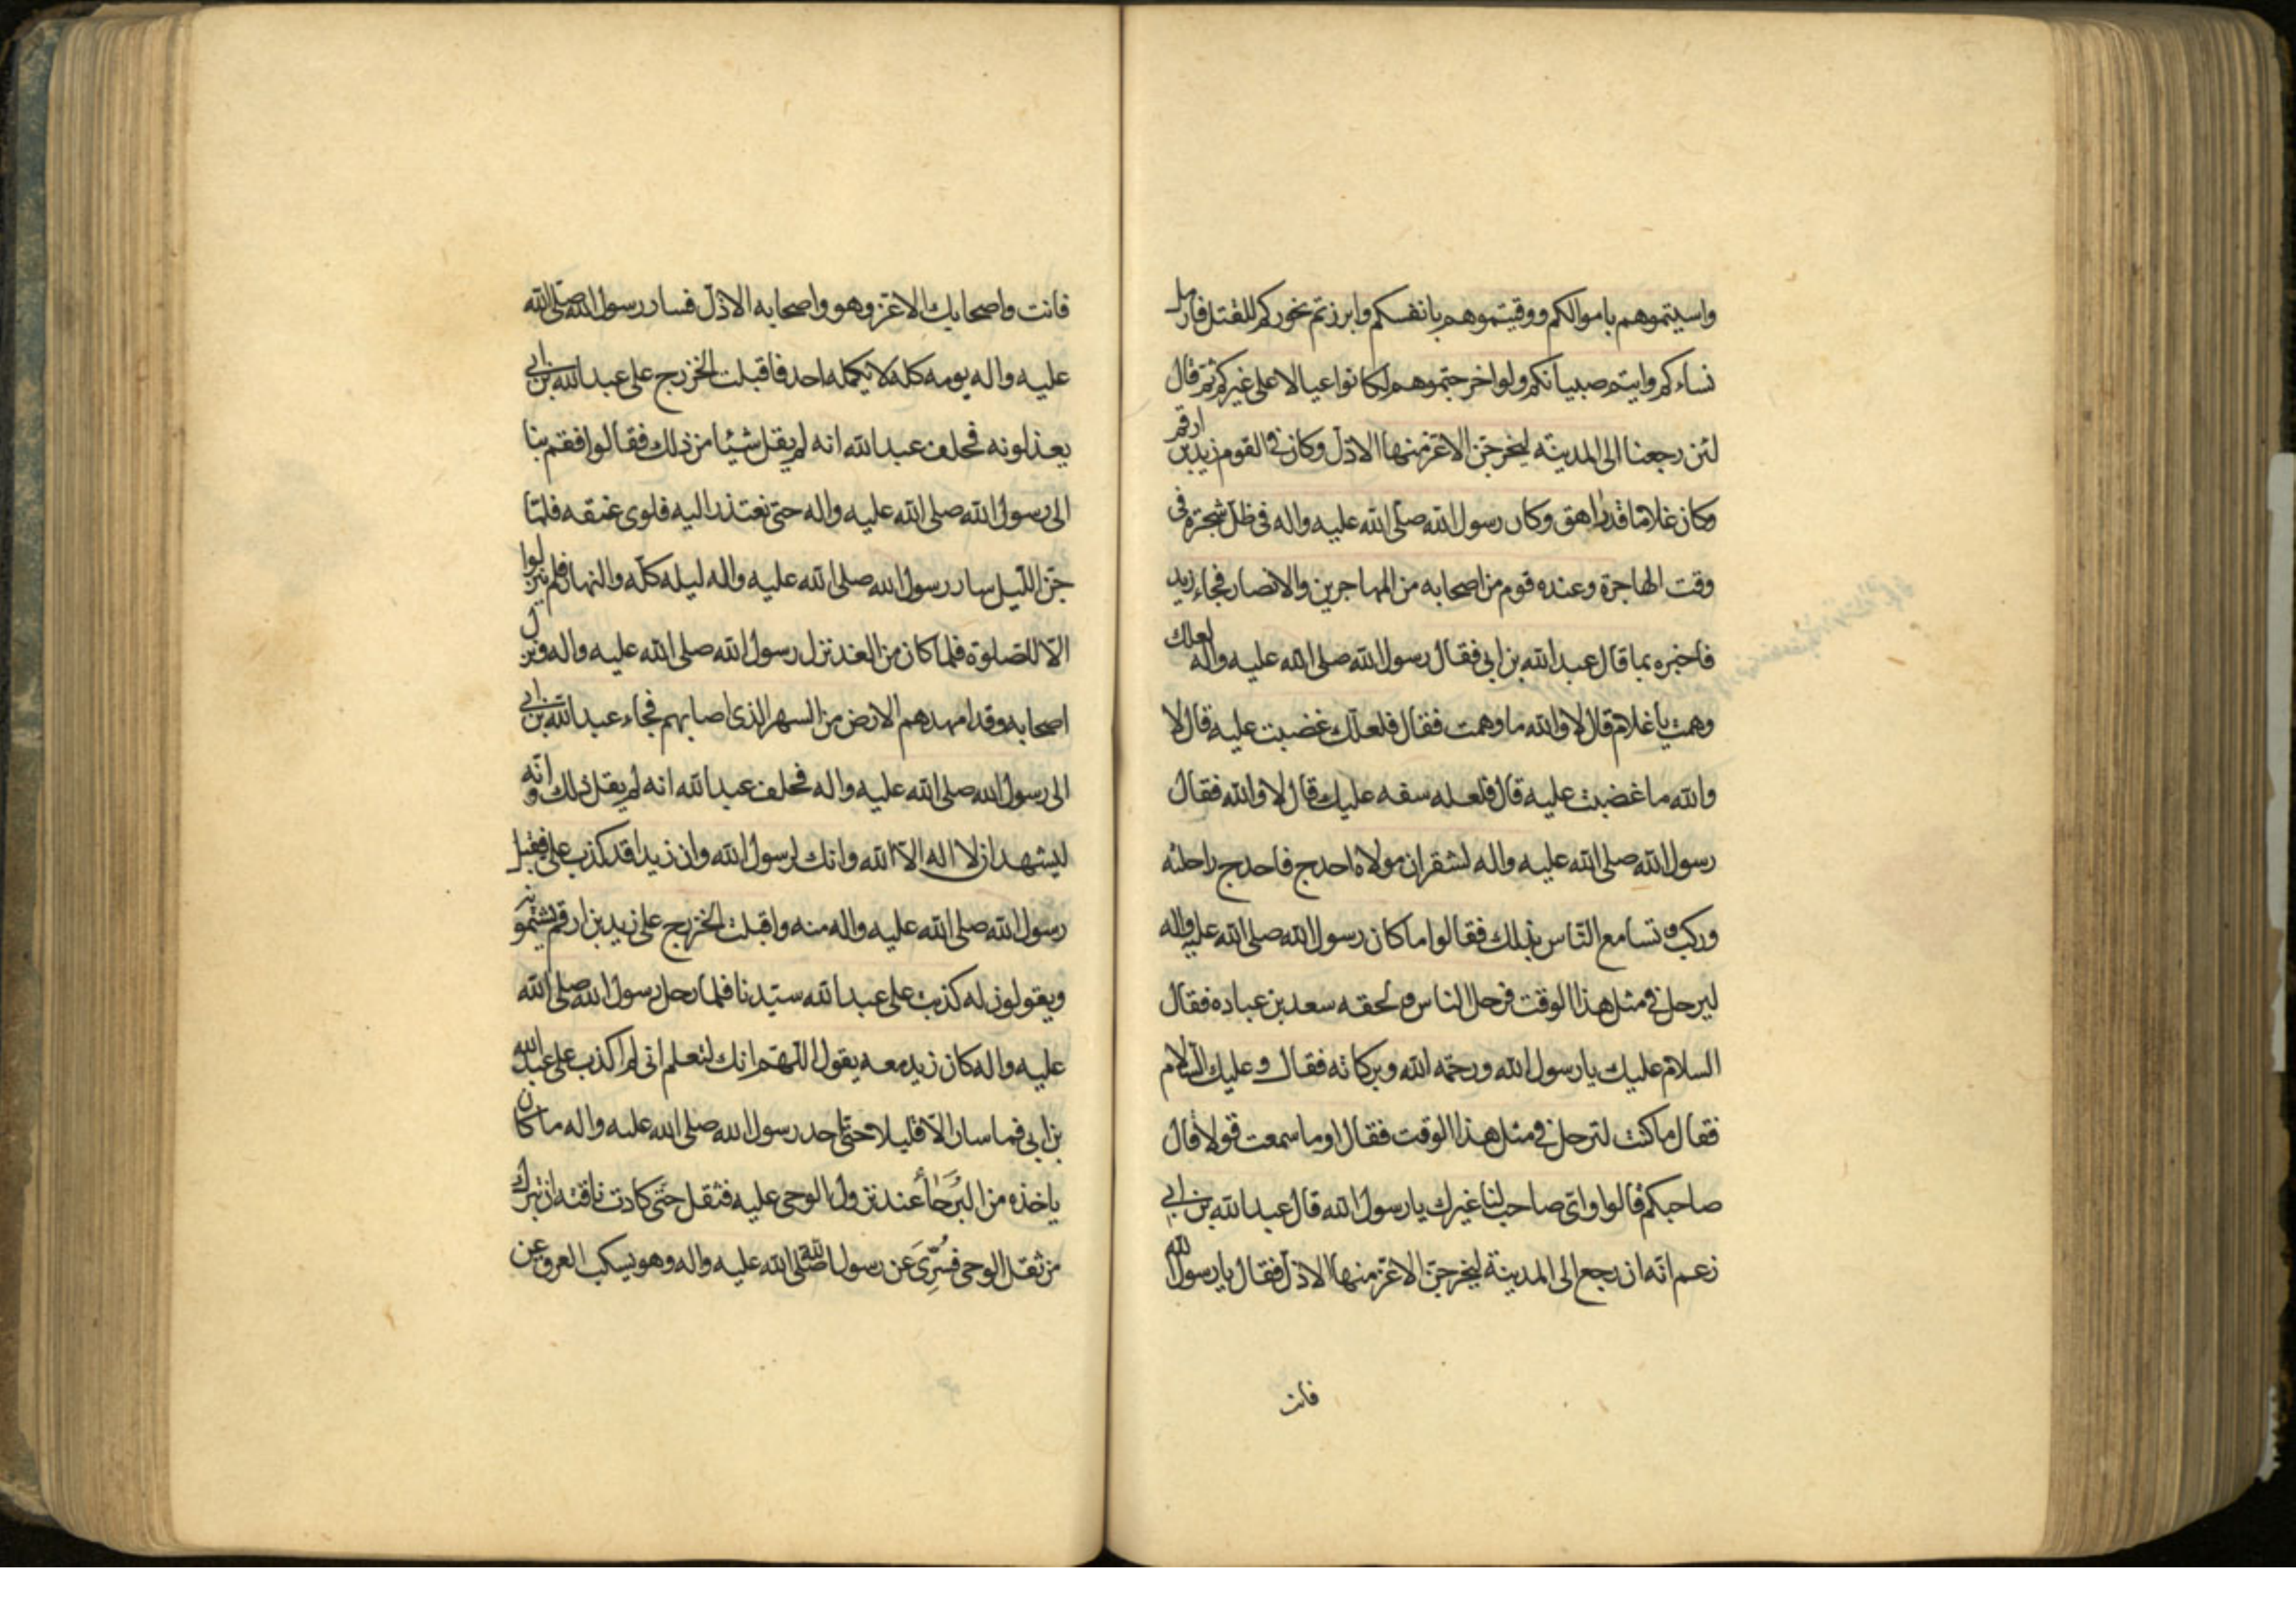 واسيتموهم باموالكم ووقيتموهم بانفسكم وابرزتم نحوركم للقتل فارمل
نساءكم وايتم صبيانكم ولو اخرجتموهم لكانوا عيالا على غيركم ثم قال
لئن رجعنا الى المدينة ليخرجن الاعز منها الاذل وكان في القوم زيد بن ارقم
وكان غلاما قد راهق وكان رسول الله صلى الله عليه واله في ظل شجرة في
وقت الهاجرة وعنده قوم من اصحابه من المهاجرين والانصار فجاء زيد
فاخبره بما قال عبد الله بن ابي فقال رسول الله صلى الله عليه واله لعلك
وهمت يا غلام قال لا والله ما وهمت فقال فلعلك غضبت عليه قال لا
والله ما غضبت عليه قال فلعله سفه عليك قال لا والله فقال
رسول الله صلى الله عليه واله لشقران مولاه احدج فاحدج راحلته
وركب وتسامع الناس بذلك فقالوا ما كان رسول الله صلى الله عليه واله
ليرحل في مثل هذا الوقت فرحل الناس ولحقه سعد بن عباده فقال
السلام عليك يا رسول الله ورحمة الله وبركاته فقال وعليك السلام
فقال ما كنت لترحل في مثل هذا الوقت فقال اوما سمعت قولا قال
صاحبكم قالوا واي صاحب لنا غيرك يا رسول الله قال عبد الله بن ابي
زعم انه ان رجع الى المدينة ليخرجن الاعز منها الاذل فقال يا رسول الله
فانت
فانت واصحابك الاعز وهو واصحابه الاذل فسار رسول الله صلى الله
عليه واله يومه كله لا يكلمه احد فاقبلت الخزرج على عبد الله بن ابي
يعذلونه فحلف عبد الله انه لم يقل شيئا من ذلك فقالوا فقم بنا
الى رسول الله صلى الله عليه واله حتى نعتذر اليه فلوى عنقه فلما
جن الليل سار رسول الله صلى الله عليه واله ليله كله والنهار فلم ينزلوا
الا للصلوة فلما كان من الغد نزل رسول الله صلى الله عليه واله ونزل
اصحابه وقد امهدهم الارض من السهر الذي اصابهم فجاء عبد الله بن ابي
الى رسول الله صلى الله عليه واله فحلف عبد الله انه لم يقل ذلك وانه
ليشهد ان لا اله الا الله وانك لرسول الله وان زيدا قد كذب علي فقبل
رسول الله صلى الله عليه واله منه واقبلت الخزرج على زيد بن ارقم يشتمونه
ويقولون له كذبت على عبد الله سيدنا فلما رحل رسول الله صلى الله
عليه واله كان زيد معه يقول اللهم انك لتعلم اني لم اكذب على عبد الله
بن ابي فما سار الا قليلا حتى اخذ رسول الله صلى الله عليه واله ما كان
ياخذه من البُرَحاء عند نزول الوحي عليه فثقل حتى كادت ناقته ان تبرك
من ثقل الوحي فسُرِّيَ عن رسول الله صلى الله عليه واله وهو يسكب العرق عن